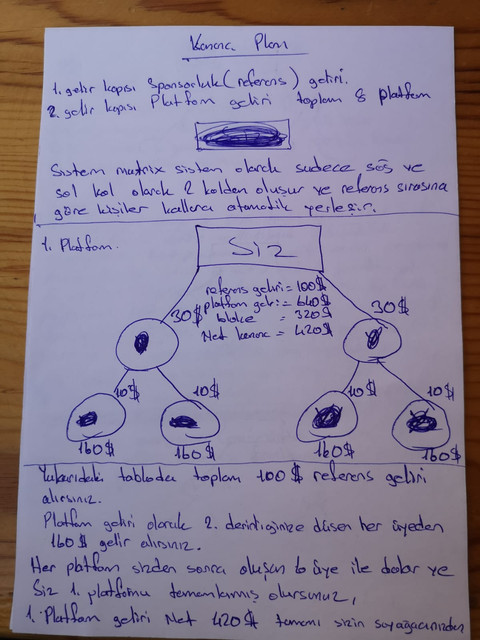 Kazanç Planı
1. gelir kapısı Sponsorluk (referans) geliri.
2. gelir kapısı Platfom geliri toplam 8 platfom
Sistem matrix sistem olarak sadece sağ ve
sol kol olarak 2 koldan oluşur ve referans sırasına
göre kişiler kollara otomatik yerleşir.
1. Platfom.
Siz
referans geliri = 100$
platfom geliri = 640$
bloke = 320$
Net kazanç = 420$
30$ 30$
10$ 10$ 10$ 10$
160$ 160$ 160$ 160$
Yukarıdaki tabloda toplam 100$ referans geliri
alırsınız.
Platfom geliri olarak 2. derinliğinize düşen her üyeden
160$ gelir alırsınız.
Her platfom sizden sonra oluşan 6 üye ile dolar ve
Siz 1. platfomu tamamlamış olursunuz,
1. Platfom geliri Net 420$ tamamı sizin soyağacınızdan